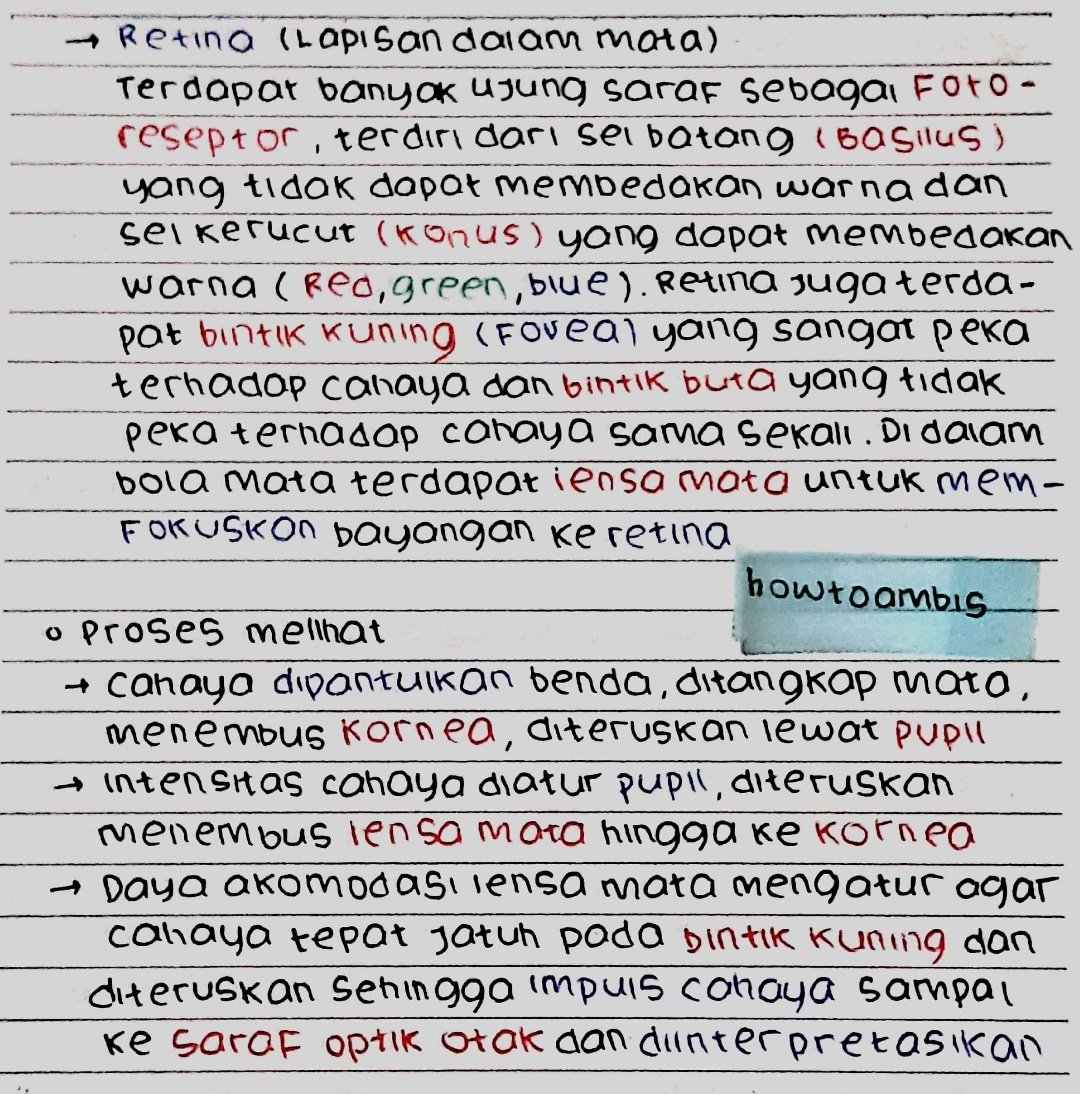 → Retina (Lapisan dalam mata)
Terdapat banyak ujung saraf sebagai Foto-
reseptor, terdiri dari sel batang (Basilus)
yang tidak dapat membedakan warna dan
sel kerucut (Konus) yang dapat membedakan
warna (Red, green, blue). Retina juga terda-
pat bintik kuning (Fovea) yang sangat peka
terhadap cahaya dan bintik buta yang tidak
peka terhadap cahaya sama sekali. Di dalam
bola mata terdapat lensa mata untuk mem-
Fokuskan bayangan ke retina
howtoambis
o Proses melihat
→ Cahaya dipantulkan benda, ditangkap mata,
menembus Kornea, diteruskan lewat pupil
→ Intensitas cahaya diatur pupil, diteruskan
menembus lensa mata hingga ke Kornea
→ Daya akomodasi lensa mata mengatur agar
cahaya tepat jatuh pada bintik kuning dan
diteruskan sehingga impuls cahaya sampai
ke saraf optik otak dan diinterpretasikan